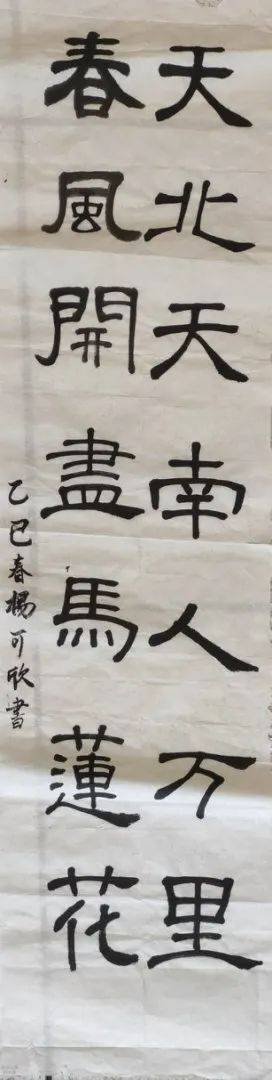 天北天南人万里
春風開盡馬蓮花
乙巳春楊可欣書